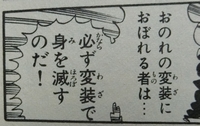 おのれの変装に
おぼれる者は…
必ず変装で
身を滅す
のだ!